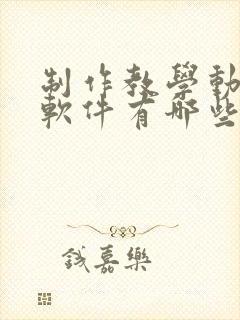 制作教學動
軟件有哪些
鐵嘉樂